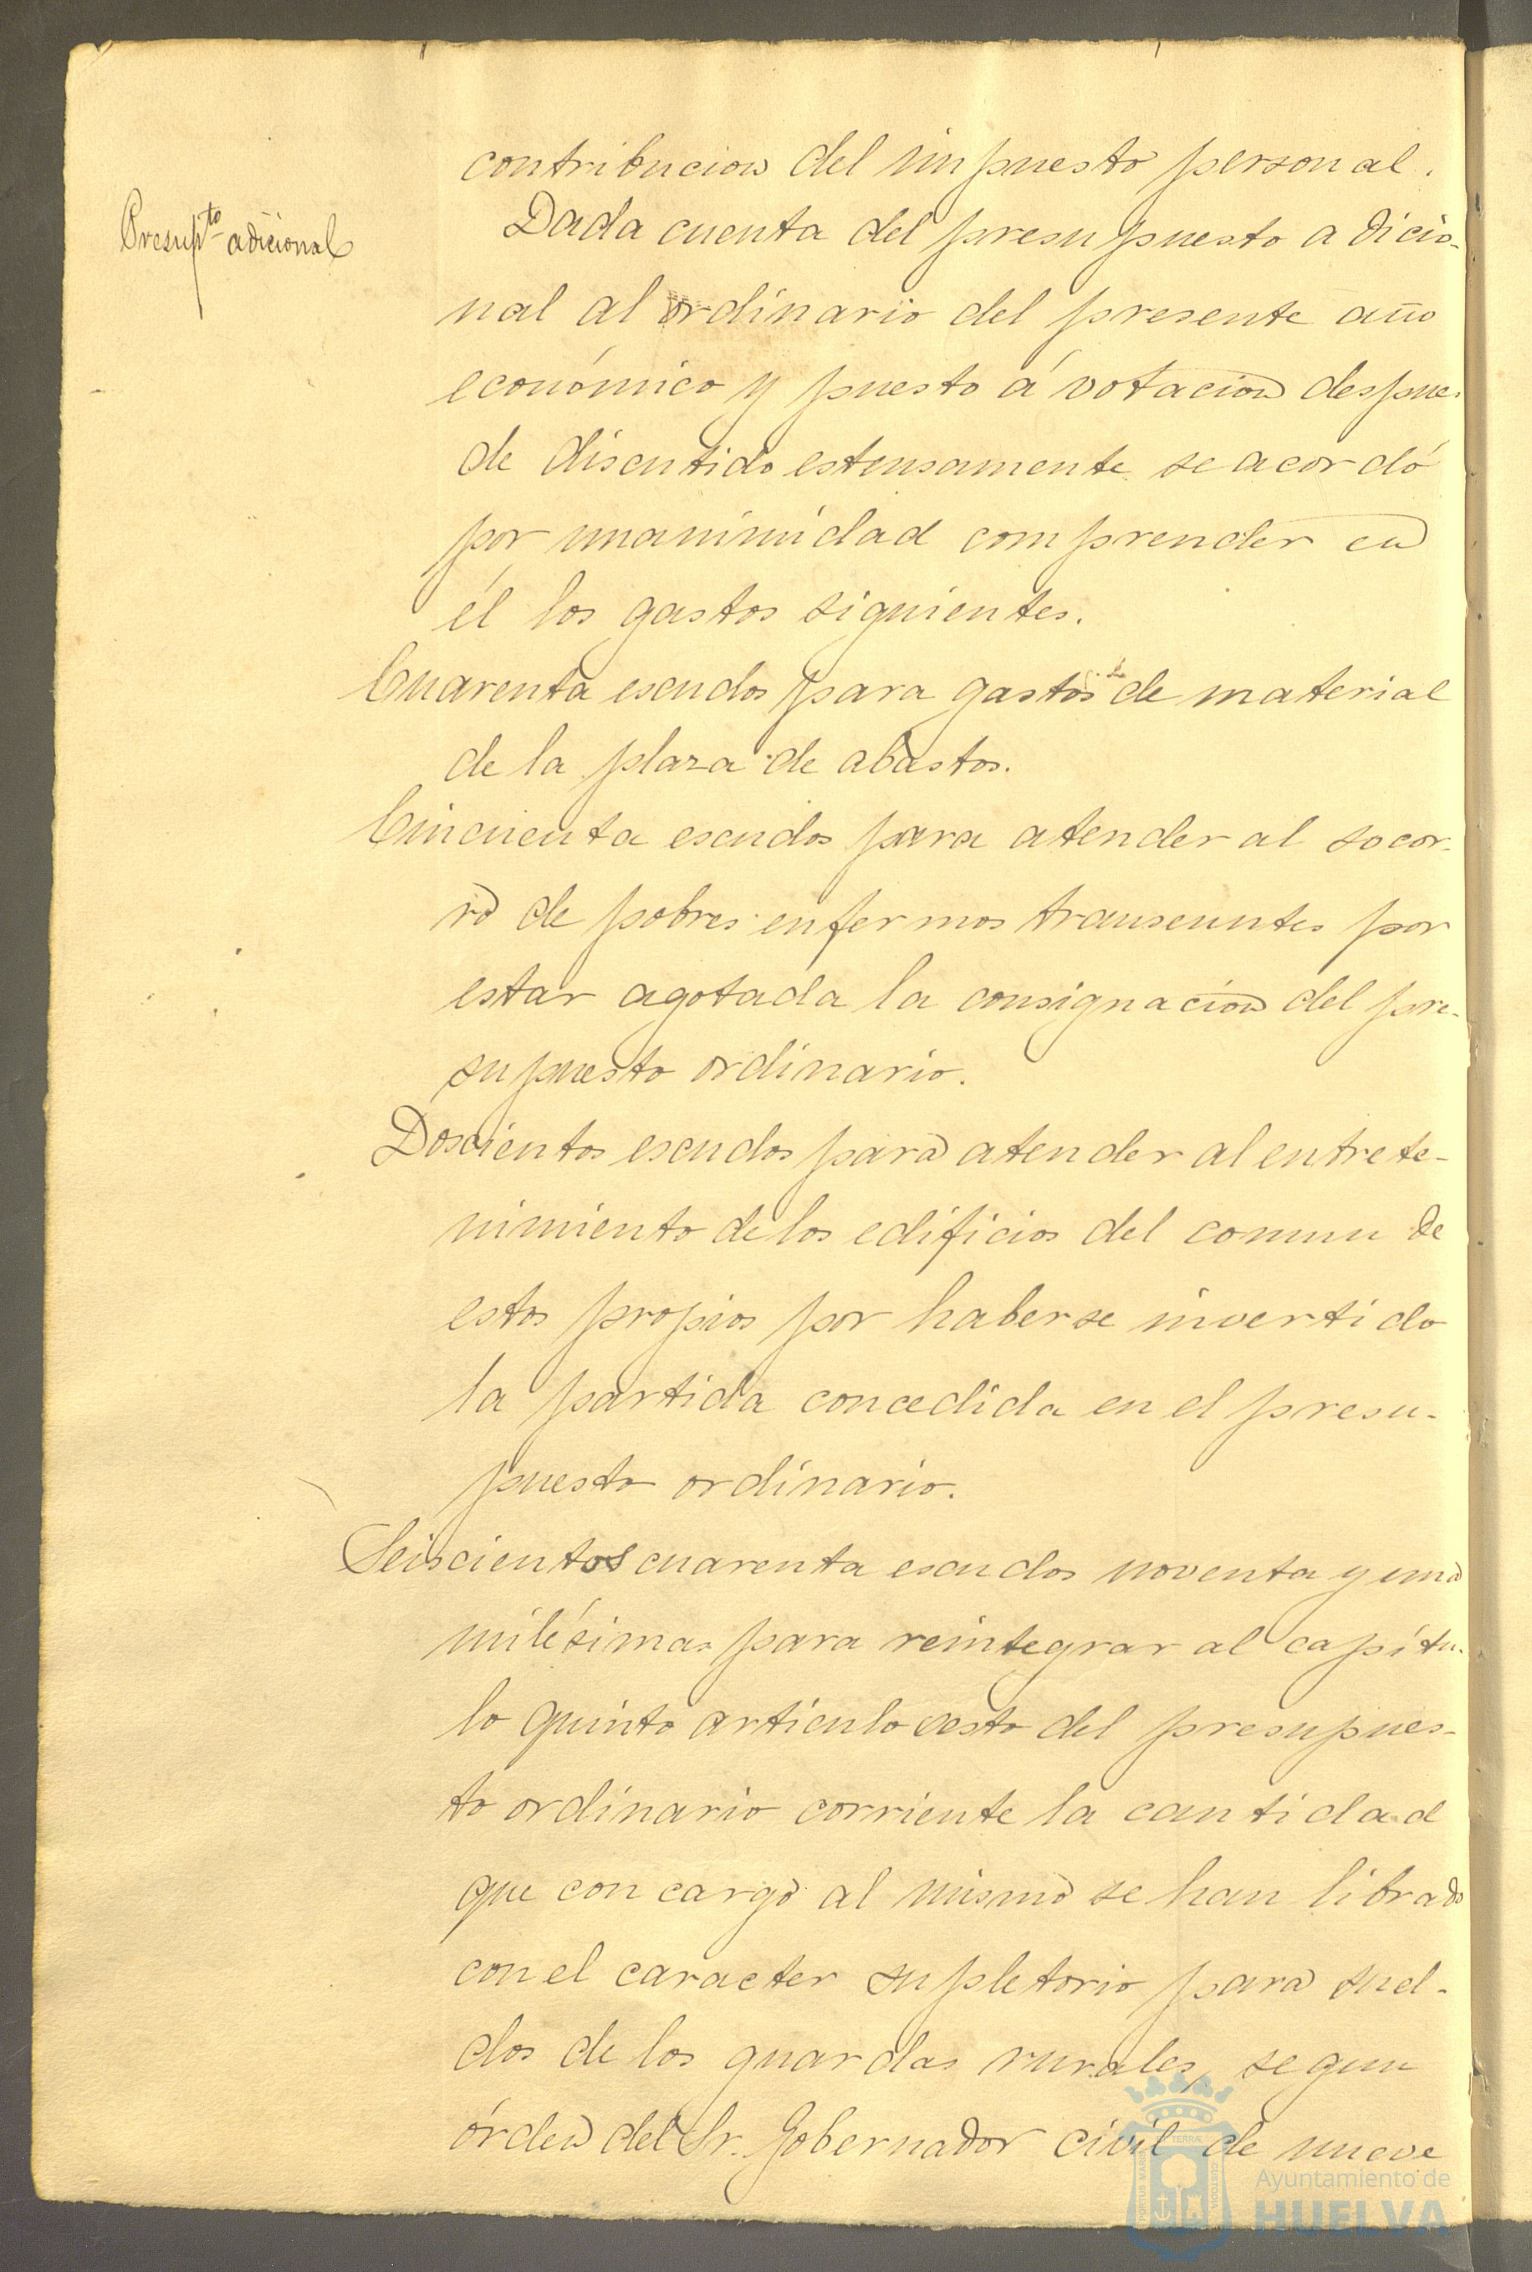 contribucion del impuesto personal.
Presupto adicional
Dada cuenta del presupuesto adicio-
nal al ordinario del presente año
económico y puesto á votacion despues
de discutido estensamente se acordó
por unanimidad comprender en
él los gastos siguientes.
Cuarenta escudos para gastos de material
de la plaza de abastos.
Cincuenta escudos para atender al socor-
ro de pobres enfermos transeuntes por
estar agotada la consignacion del pre-
supuesto ordinario.
Doscientos escudos para atender al entrete-
nimiento de los edificios del comun de
estos propios por haberse invertido
la partida concedida en el presu-
puesto ordinario.
Seiscientos cuarenta escudos noventa y una
milésimas para reintegrar al capítu-
lo quinto artículo sesto del presupues-
to ordinario corriente la cantidad
que con cargo al mismo se han librado
con el caracter supletorio para suel-
dos de los guardas rurales, segun
órden del Sr. Gobernador civil de nueve
Ayuntamiento de
HUELVA